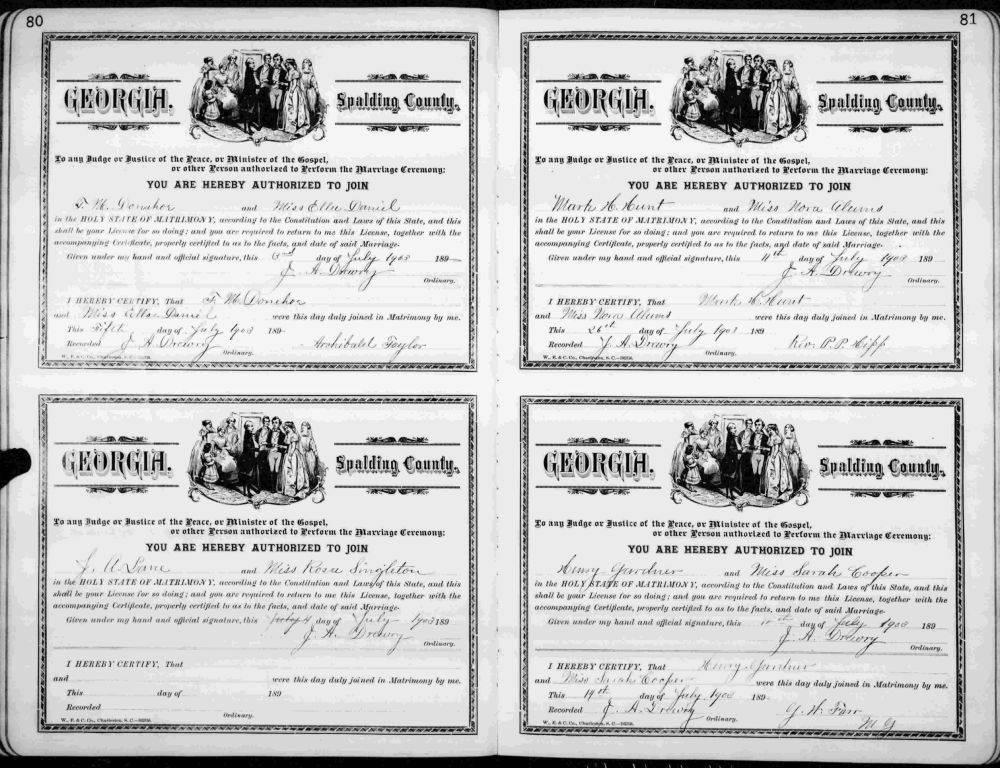 80
GEORGIA. Spalding County.
To any Judge or Justice of the Peace, or Minister of the Gospel,
or other Person authorized to Perform the Marriage Ceremony:
YOU ARE HEREBY AUTHORIZED TO JOIN
F. M. Donehoe and Miss Ellse Daniel
in the HOLY STATE OF MATRIMONY, according to the Constitution and Laws of this State, and this
shall be your License for so doing; and you are required to return to me this License, together with the
accompanying Certificate, properly certified as to the facts, and date of said Marriage.
Given under my hand and official signature, this 3rd day of July 1903 189
J. A. Drewry
Ordinary.
I HEREBY CERTIFY, That F. M. Donehoe
and Miss Ellse Daniel were this day duly joined in Matrimony by me.
This Fifth day of July 1903 189
Recorded J. A. Drewry Archibald Taylor
Ordinary.
W., E. & C. Co., Charleston, S. C.
GEORGIA. Spalding County.
To any Judge or Justice of the Peace, or Minister of the Gospel,
or other Person authorized to Perform the Marriage Ceremony:
YOU ARE HEREBY AUTHORIZED TO JOIN
J. A. Lane and Miss Rosa Singleton
in the HOLY STATE OF MATRIMONY, according to the Constitution and Laws of this State, and this
shall be your License for so doing; and you are required to return to me this License, together with the
accompanying Certificate, properly certified as to the facts, and date of said Marriage.
Given under my hand and official signature, this 4 day of July 1903 189
J. A. Drewry
Ordinary.
I HEREBY CERTIFY, That
and were this day duly joined in Matrimony by me.
This day of 189
Recorded
Ordinary.
W., E. & C. Co., Charleston, S. C.
81
GEORGIA. Spalding County.
To any Judge or Justice of the Peace, or Minister of the Gospel,
or other Person authorized to Perform the Marriage Ceremony:
YOU ARE HEREBY AUTHORIZED TO JOIN
Mark H. Hunt and Miss Nora Alums
in the HOLY STATE OF MATRIMONY, according to the Constitution and Laws of this State, and this
shall be your License for so doing; and you are required to return to me this License, together with the
accompanying Certificate, properly certified as to the facts, and date of said Marriage.
Given under my hand and official signature, this 4th day of July 1903 189
J. A. Drewry
Ordinary.
I HEREBY CERTIFY, That Mark H. Hunt
and Miss Nora Alums were this day duly joined in Matrimony by me.
This 26th day of July 1903 189
Recorded J. A. Drewry Rev. P. P. Hipp
Ordinary.
W., E. & C. Co., Charleston, S. C.
GEORGIA. Spalding County.
To any Judge or Justice of the Peace, or Minister of the Gospel,
or other Person authorized to Perform the Marriage Ceremony:
YOU ARE HEREBY AUTHORIZED TO JOIN
Henry Gardner and Miss Sarah Cooper
in the HOLY STATE OF MATRIMONY, according to the Constitution and Laws of this State, and this
shall be your License for so doing; and you are required to return to me this License, together with the
accompanying Certificate, properly certified as to the facts, and date of said Marriage.
Given under my hand and official signature, this 10th day of July 1903 189
J. A. Drewry
Ordinary.
I HEREBY CERTIFY, That Henry Gardner
and Miss Sarah Cooper were this day duly joined in Matrimony by me.
This 19th day of July 1903 189
Recorded J. A. Drewry G. W. Farr
Ordinary. M G
W., E. & C. Co., Charleston, S. C.